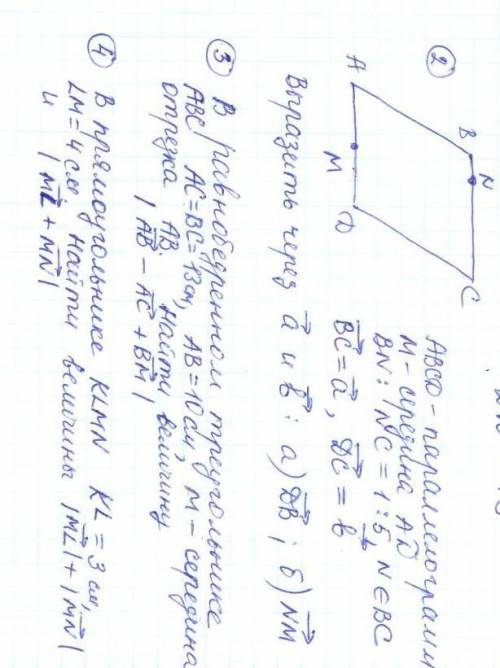 ②
A
B
N
C
M
D
ABCD - параллелограмм
M - середина AD
BN : NC = 1:5, N∈BC
BC = a, DC = b
Выразить через a и b: а) DB; б) NM
③ В равнобедренном треугольнике
ABC AC=BC=13см, AB=10см, M - середина
отрезка AB. Найти величину
|AB - AC + BM|
④ В прямоугольнике KLMN KL=3см,
LM=4см. Найти величины |ML|+|MN|
и |ML + MN|